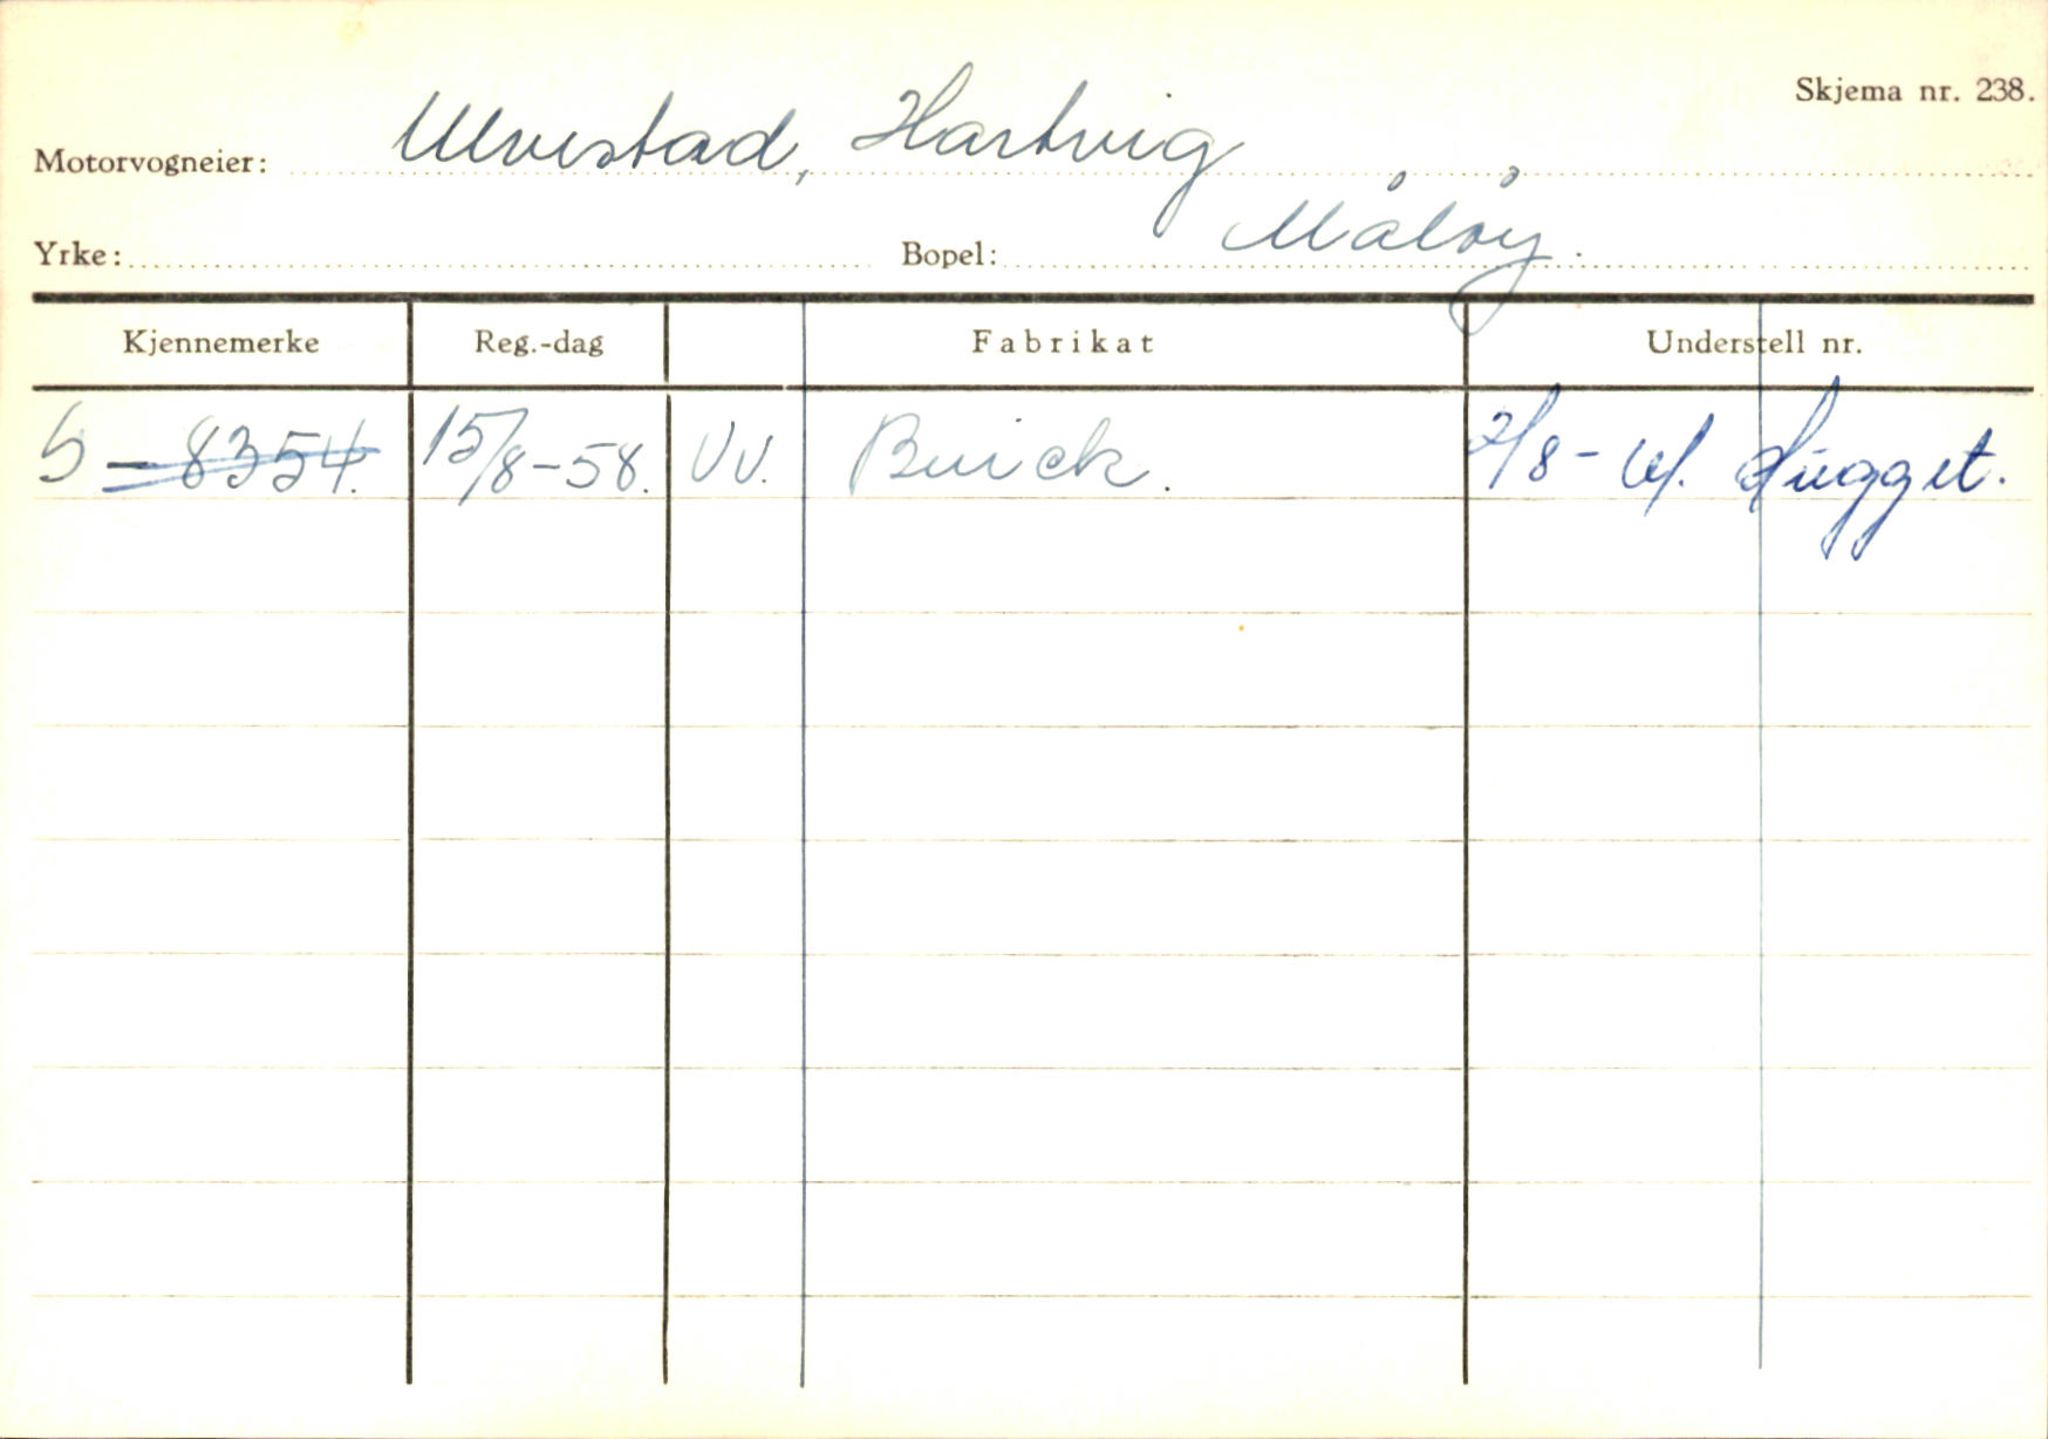 Skjema nr. 238.
Motorvogneier: Ulvestad, Hartvig
Yrke: Bopel: Måløy.
Kjennemerke Reg.-dag Fabrikat Understell nr.
S - 8354. 15/8-58. VV. Buick. 2/8-61. Hugget.